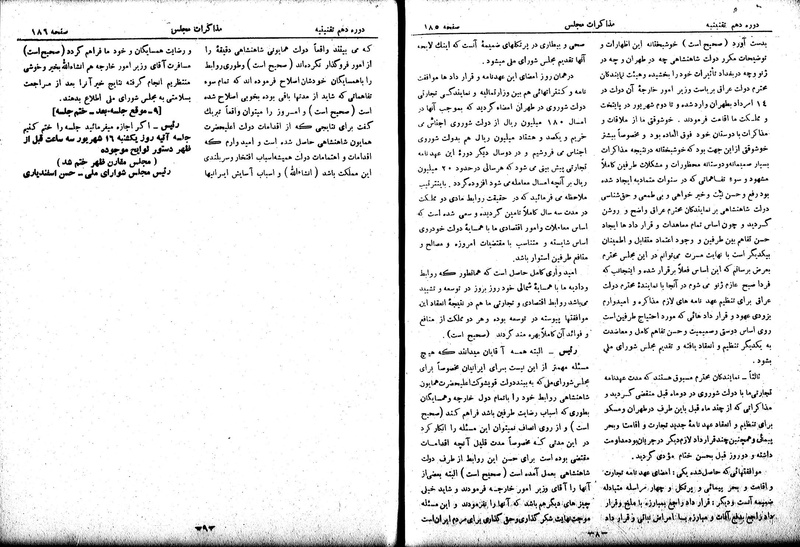 دوره دهم تقنینیه
مذاکرات مجلس
صفحه ۱۸۵
بدست آورد (صحیح است) خوشبختانه این اظهارات و
توضیحات مکرر دولت شاهنشاهی چه در طهران و چه در
ژنو وچه دربغداد تأثیرات خود را بخشیده وهیئت نمایندگان
محترم دولت عراق بریاست وزیر امور خارجهٔ آن دولت در
۱۴ امرداد بطهران وارد شده و تا دوم شهریور در پایتخت
و مملکت ما اقامت فرمودند . خوشوقتی ما از ملاقات و
مذاکرات با دوستان خود فوق العاده بود و مخصوصاً بیشتر
خوشوقتی از این جهت بود که خوشبختانه درنتیجه مذاکرات
بسیار صمیمانه ودوستانه محظورات و مشکلات طرفین کاملاً
مشهود و سوء تفاهماتی که در سنوات متمادیه ایجاد شده
بود رفع و حسن نیّت وخیر خواهی و بی طمعی و حق‌شناسی
دولت شاهنشاهی بر نمایندگان محترم عراق واضح و روشن
گردید و چون اساس تمام معاهدات و قرار داد ها ایجاد
حسن تفاهم بین طرفین و وجود اعتماد متقابل و اطمینان
بیکدیگر است با نهایت مسرت می‌توانم در این مجلس محترم
بعرض برسانم که این اساس فعلاً برقرار شده و اینجانب که
فردا صبح عازم ژنو می شوم در آنجا با نمایندهٔ محترم دولت
عراق برای تنظیم عهد نامه های لازم مذاکره و امیدوارم
بزودی عهود و قرار داد هائی که مورد احتیاج طرفین است
روی اساس دوستی وصمیمیت و حسن تفاهم کامل و معاضدت
به یکدیگر تنظیم و انعقاد یافته و تقدیم مجلس شورای ملی
بشود .
ثالثاً – نمایندگان محترم مسبوق هستند که مدت عهدنامه
تجارتی ما با دولت شوروی در دو ماه قبل منقضی گردید و
مذاکراتی که از چند ماه قبل باین طرف درطهران ومسکو
برای تنظیم و انعقاد عهد نامهٔ جدید تجارت و اقامت وبحر
پیمائی وهمچنین چند قرارداد لازم دیگر در جریان بود مداومت
داشته و دو روز قبل بحسن ختام مؤدی گردید .
موافقتهائی که حاصل شده یکی : امضای عهد نامه تجارت
و اقامت و بحر پیمائی و پرتکل و چهار مراسله متبادله
ضمیمه آنست و دیگر : قرار داد راجع بمبارزه با ملخ وقرار
داد راجع بدفع آفات و مبارزه بسا امراض نباتی و قرار داد
صحی و بیطاری در پرتکلهای ضمیمهٔ آنست که اینک لایحه
آنها تقدیم مجلس شورای ملی میشود .
درهمان روز امضای این عهدنامه و قرار داد ها موافقت
نامه و کنتراتهائی هم بین وزارتمالیه و نمایندگی تجارتی
دولت شوروی در طهران امضاء گردید که بموجب آنها در
امسال ۱۸۰ میلیون ریال از دولت شوروی اجناس می
خریم و یکصد و هشتاد میلیون ریال هم بدولت شوروی
اجناس می فروشیم و در دوسال دیگر دورهٔ این عهدنامه
تجارتی پیش بینی می شود که هرسالی درحدود ۲۰ میلیون
ریال بر آنچه امسال معامله می شود افزوده گردد . باینترتیب
ملاحظه می فرمائید که در حقیقت روابط مادی دو مملکت
در مدت سه سال کاملاً تامین گردیده و سعی شده است که
اساس معاملات وامور اقتصادی ما با همسایهٔ دولت خود روی
اساس شایسته و متناسب با مقتضیات امروزه و مصالح و
منافع طرفین استوار باشد .
امید واری کامل حاصل است که همانطور که روابط
ودادیه ما با همسایهٔ شمالی خود روز بروز در توسعه و تشیید
می‌باشد روابط اقتصادی و تجارتی ما هم در نتیجهٔ انعقاد این
موافقتها پیوسته در توسعه بوده وهر دو مملکت از منافع
و فوائد آن کاملاً بهره مند گردند (صحیح است) .
رئیس – البته همه آقایان میدانند که هیچ
مسئله مهمتر از این نیست برای ایرانیان مخصوصاً برای
مجلس‌شورای ملی که به بینند دولت قویشوکت اعلیحضرت همایون
شاهنشاهی روابط خود را باتمام دول خارجه و همسایگان
بطوری که اسباب رضایت طرفین باشد فراهم کنند (صحیح
است) و از روی انصاف نمیتوان این مسئله را انکار کرد
در این مدتی که مخصوصاً مدت قلیل آنچه اقدامات
مقتضی بوده است برای حسن این روابط از طرف دولت
شاهنشاهی بعمل آمده است (صحیح است) البته بعضی از
آنها را آقای وزیر امور خارجه فرمودند و شاید خیلی
چیز های دیگر هم باشد که آنها را نفرمودند و این
موجب نهایت شکر گذاری وحق گذاری برای مردم ایران است
۳۸۳
دوره دهم تقنینیه
مذاکرات مجلس
صفحه ۱۸۶
که می بینند واقعاً دولت همایونی شاهنشاهی دقیقهٔ را
از امور فروگذار نکرده‌اند (صحیح است) وطوری روابط
را باهمسایگان خودشان اصلاح فرموده اند که تمام سوء
تفاهماتی که شاید از مدتها باقی بوده بخوبی اصلاح شده
است (صحیح است) و امروز را میتوان واقعاً تبریك
گفت برای نتایجی که از اقدامات دولت اعلیحضرت
همایون شاهنشاهی حاصل شده است و امید وارم که
اقدامات و اهتمامات دولت همیشه اسباب افتخار و سربلندی
این مملکت باشد (انشاءالله) و اسباب آسایش ایرانیها
و رضایت همسایگان و خود ما فراهم گردد (صحیح است)
مسافرت آقای وزیر امور خارجه هم انشاءالله بخیر وخوشی
منتظریم انجام گرفته نتایج خیر آنرا بعد از مراجعت
بسلامتی به مجلس شورای ملی اطلاع بدهند.
[۹ – موقع جلسه بعد – ختم جلسه]
رئیس – اگر اجازه میفرمائید جلسه را ختم کنیم
جلسه آتیه روز یکشنبه ۱۶ شهریور سه ساعت قبل از
ظهر دستور لوایح موجوده
(مجلس مقارن ظهر ختم شد)
رئیس مجلس شورای ملی – حسن اسفندیاری